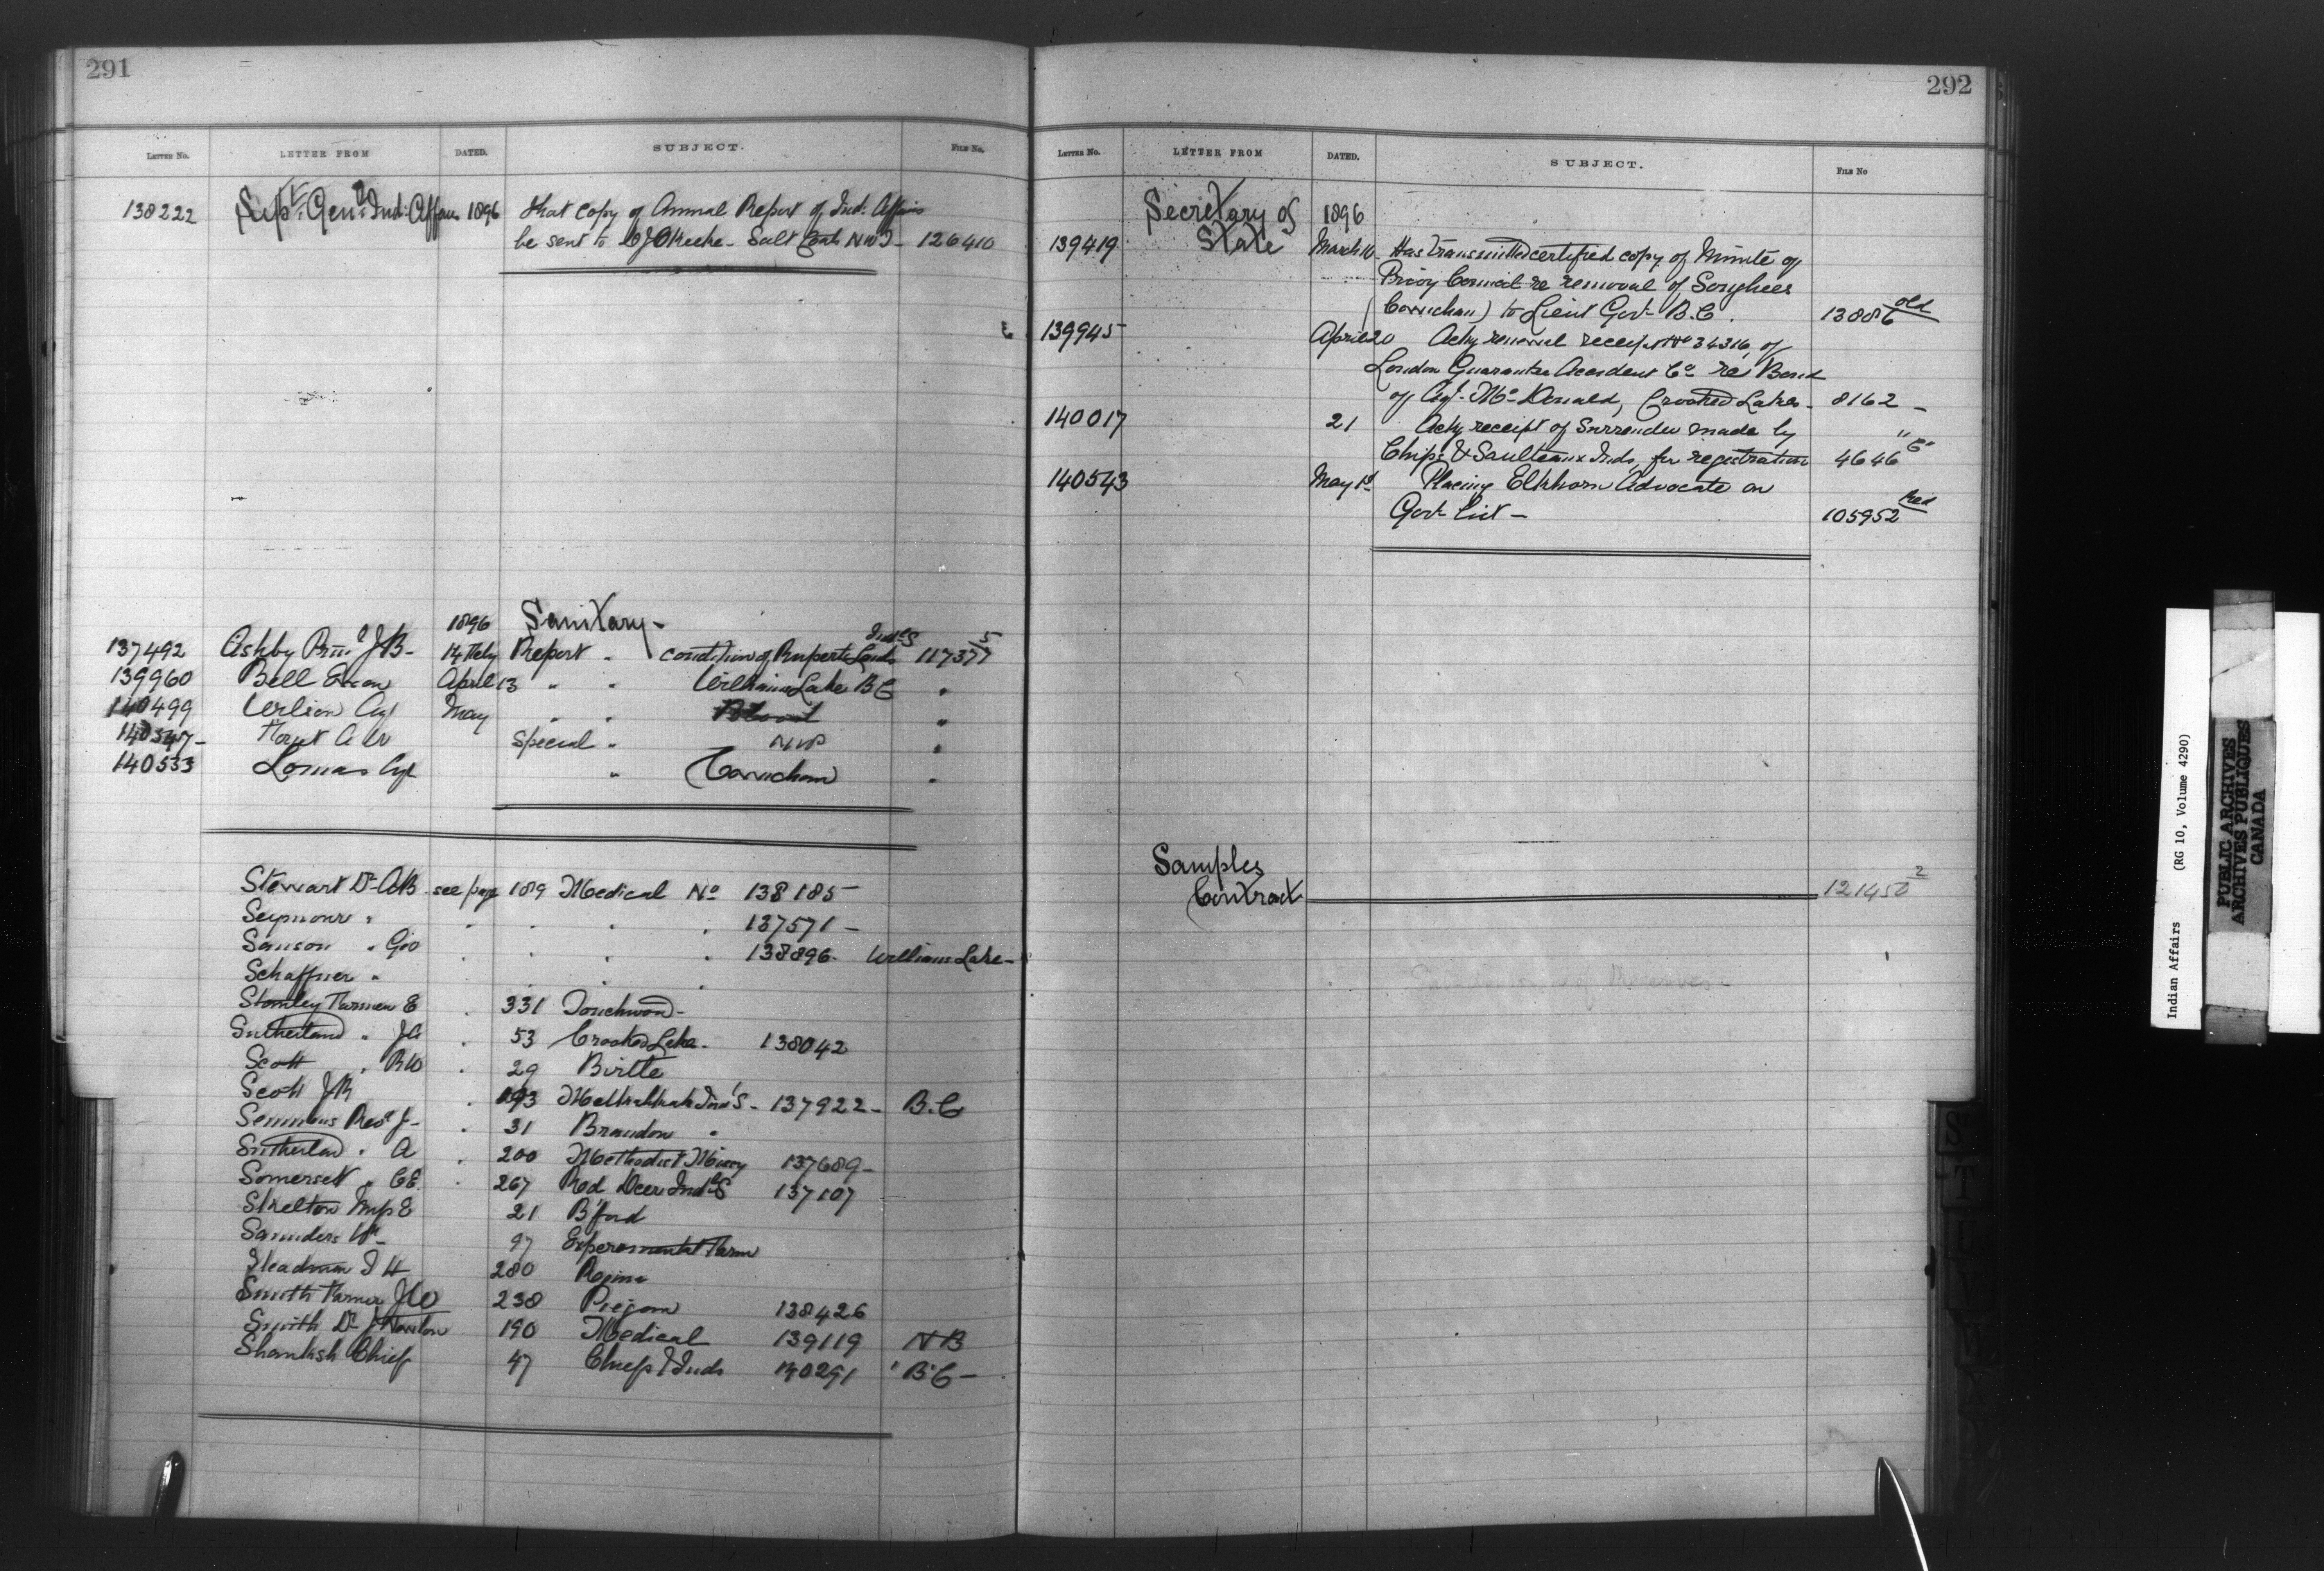 291
LETTER No. LETTER FROM DATED. SUBJECT. FILE No.
138222 Supt. Genl. Ind. Affairs 1896 that copy of Annual Report of Ind. Affairs
be sent to Salt N.W.T- 126410
1896 Sanitary-
137492 Ashby Prin. J.B- 14 Feby Report - condition of Ruperts Lands Indl S 117377 5
139960 Bell Ewan April 13 " " Williams Lake B.C "
140499 Verlien Agt May " " "
140347- A Special " NWP "
140533 Lomas Agt " Cowichan "
Stewart Dr AB see page 189 Medical No 138185-
Seymour " . . . . 137571-
Sanson " Geo . . . . 138896. Williams Lake-
Schaffner " . . . .
Stanley Farmer E . 331 Touchwood-
Sutherland " JA . 53 Crooked Lake- 138042
Scott " RW . 29 Birtle
Scott JR . 193 Metlakatla Indl S- 137922- B.C
Semmens Revd J- . 31 Brandon "
Sutherland " A . 200 Methodist Missy 137689-
Somerset " CE . 267 Red Deer Indl S 137107
Skelton Mrs E 21 B'ford
Saunders Wm- 97 Experemental Farm
Steadman I H 280 Regina
Smith Farmer JW 238 Piegan 138426
Smith Dr J Newton 190 Medical 139119 NB
Shamksh Chief 47 Chiefs & Inds 140291 B.C-
292
LETTER No. LETTER FROM DATED. SUBJECT. FILE No
Secretary of 1896
139419 State March 16 Has transmitted certified copy of Minute of
Privy Council re removal of Songhees
(Cowichan) to Lieut Govr B.C. 13886 old
139945 April 20 Ackg renewal receipt No 34316 of
London Guarantee Accident Co re Bond
of Agt McDonald, Crooked Lakes- 8162-
140017 21 Ackg receipt of Surrender made by
Chips & Saulteaux Inds, for registration 4646 "E"
140543 May 1st Placing Elkhorn Advocate on
Govt list- 105952 Red
Samples
Contract 121450 2
S
T
Indian Affairs (RG 10, Volume 4290)
PUBLIC ARCHIVES
ARCHIVES PUBLIQUES
CANADA